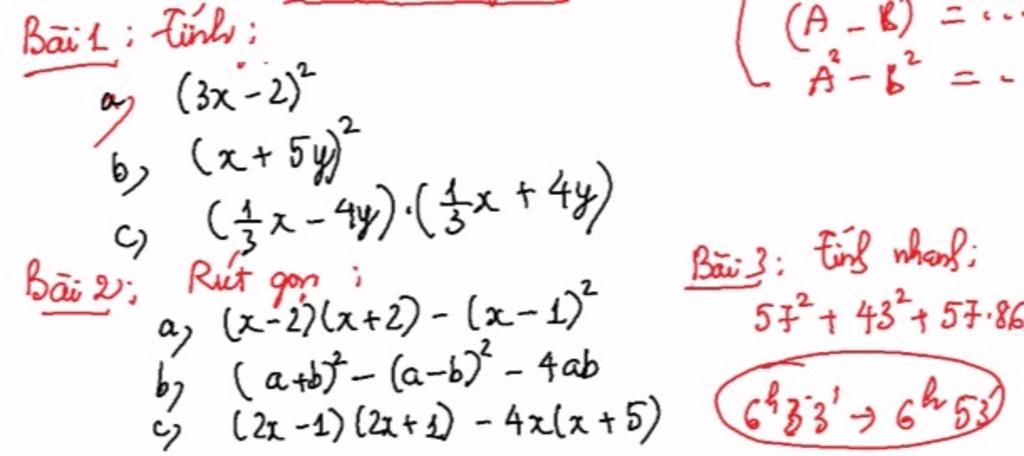 (A - B) = ...
A² - B² = ..
Bài 1: Tính:
a, (3x - 2)²
b, (x + 5y)²
c, (1/3 x - 4y).(1/3 x + 4y)
Bài 2: Rút gọn:
a, (x-2)(x+2) - (x-1)²
b, (a+b)² - (a-b)² - 4ab
c, (2x-1)(2x+1) - 4x(x+5)
Bài 3: Tính nhanh:
57² + 43² + 57.86
6h33' → 6h53'